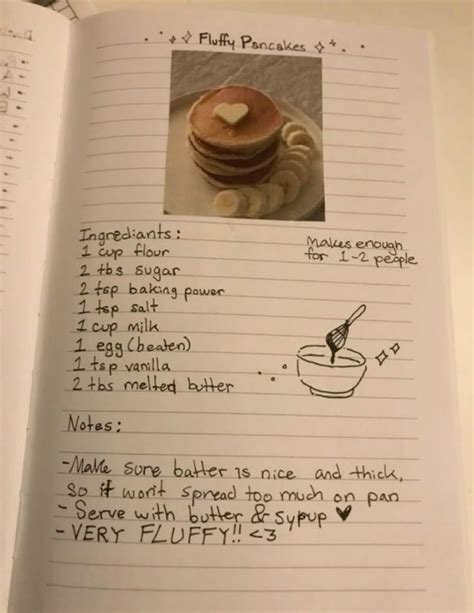 Fluffy Pancakes
Ingrediants:
1 cup flour
2 tbs sugar
2 tsp baking power
1 tsp salt
1 cup milk
1 egg (beaten)
1 tsp vanilla
2 tbs melted butter
Makes enough
for 1-2 people
Notes:
-Make sure batter is nice and thick,
so it won't spread too much on pan
- Serve with butter & syrup ♥
- VERY FLUFFY!! <3